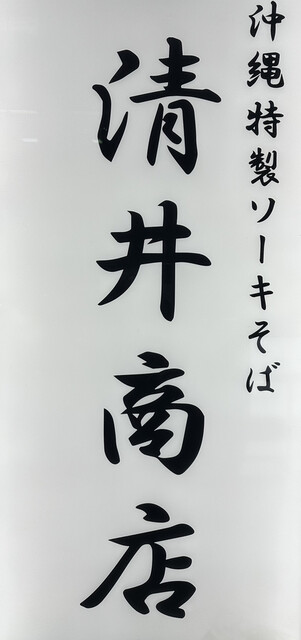 沖縄特製ソーキそば
清井商店